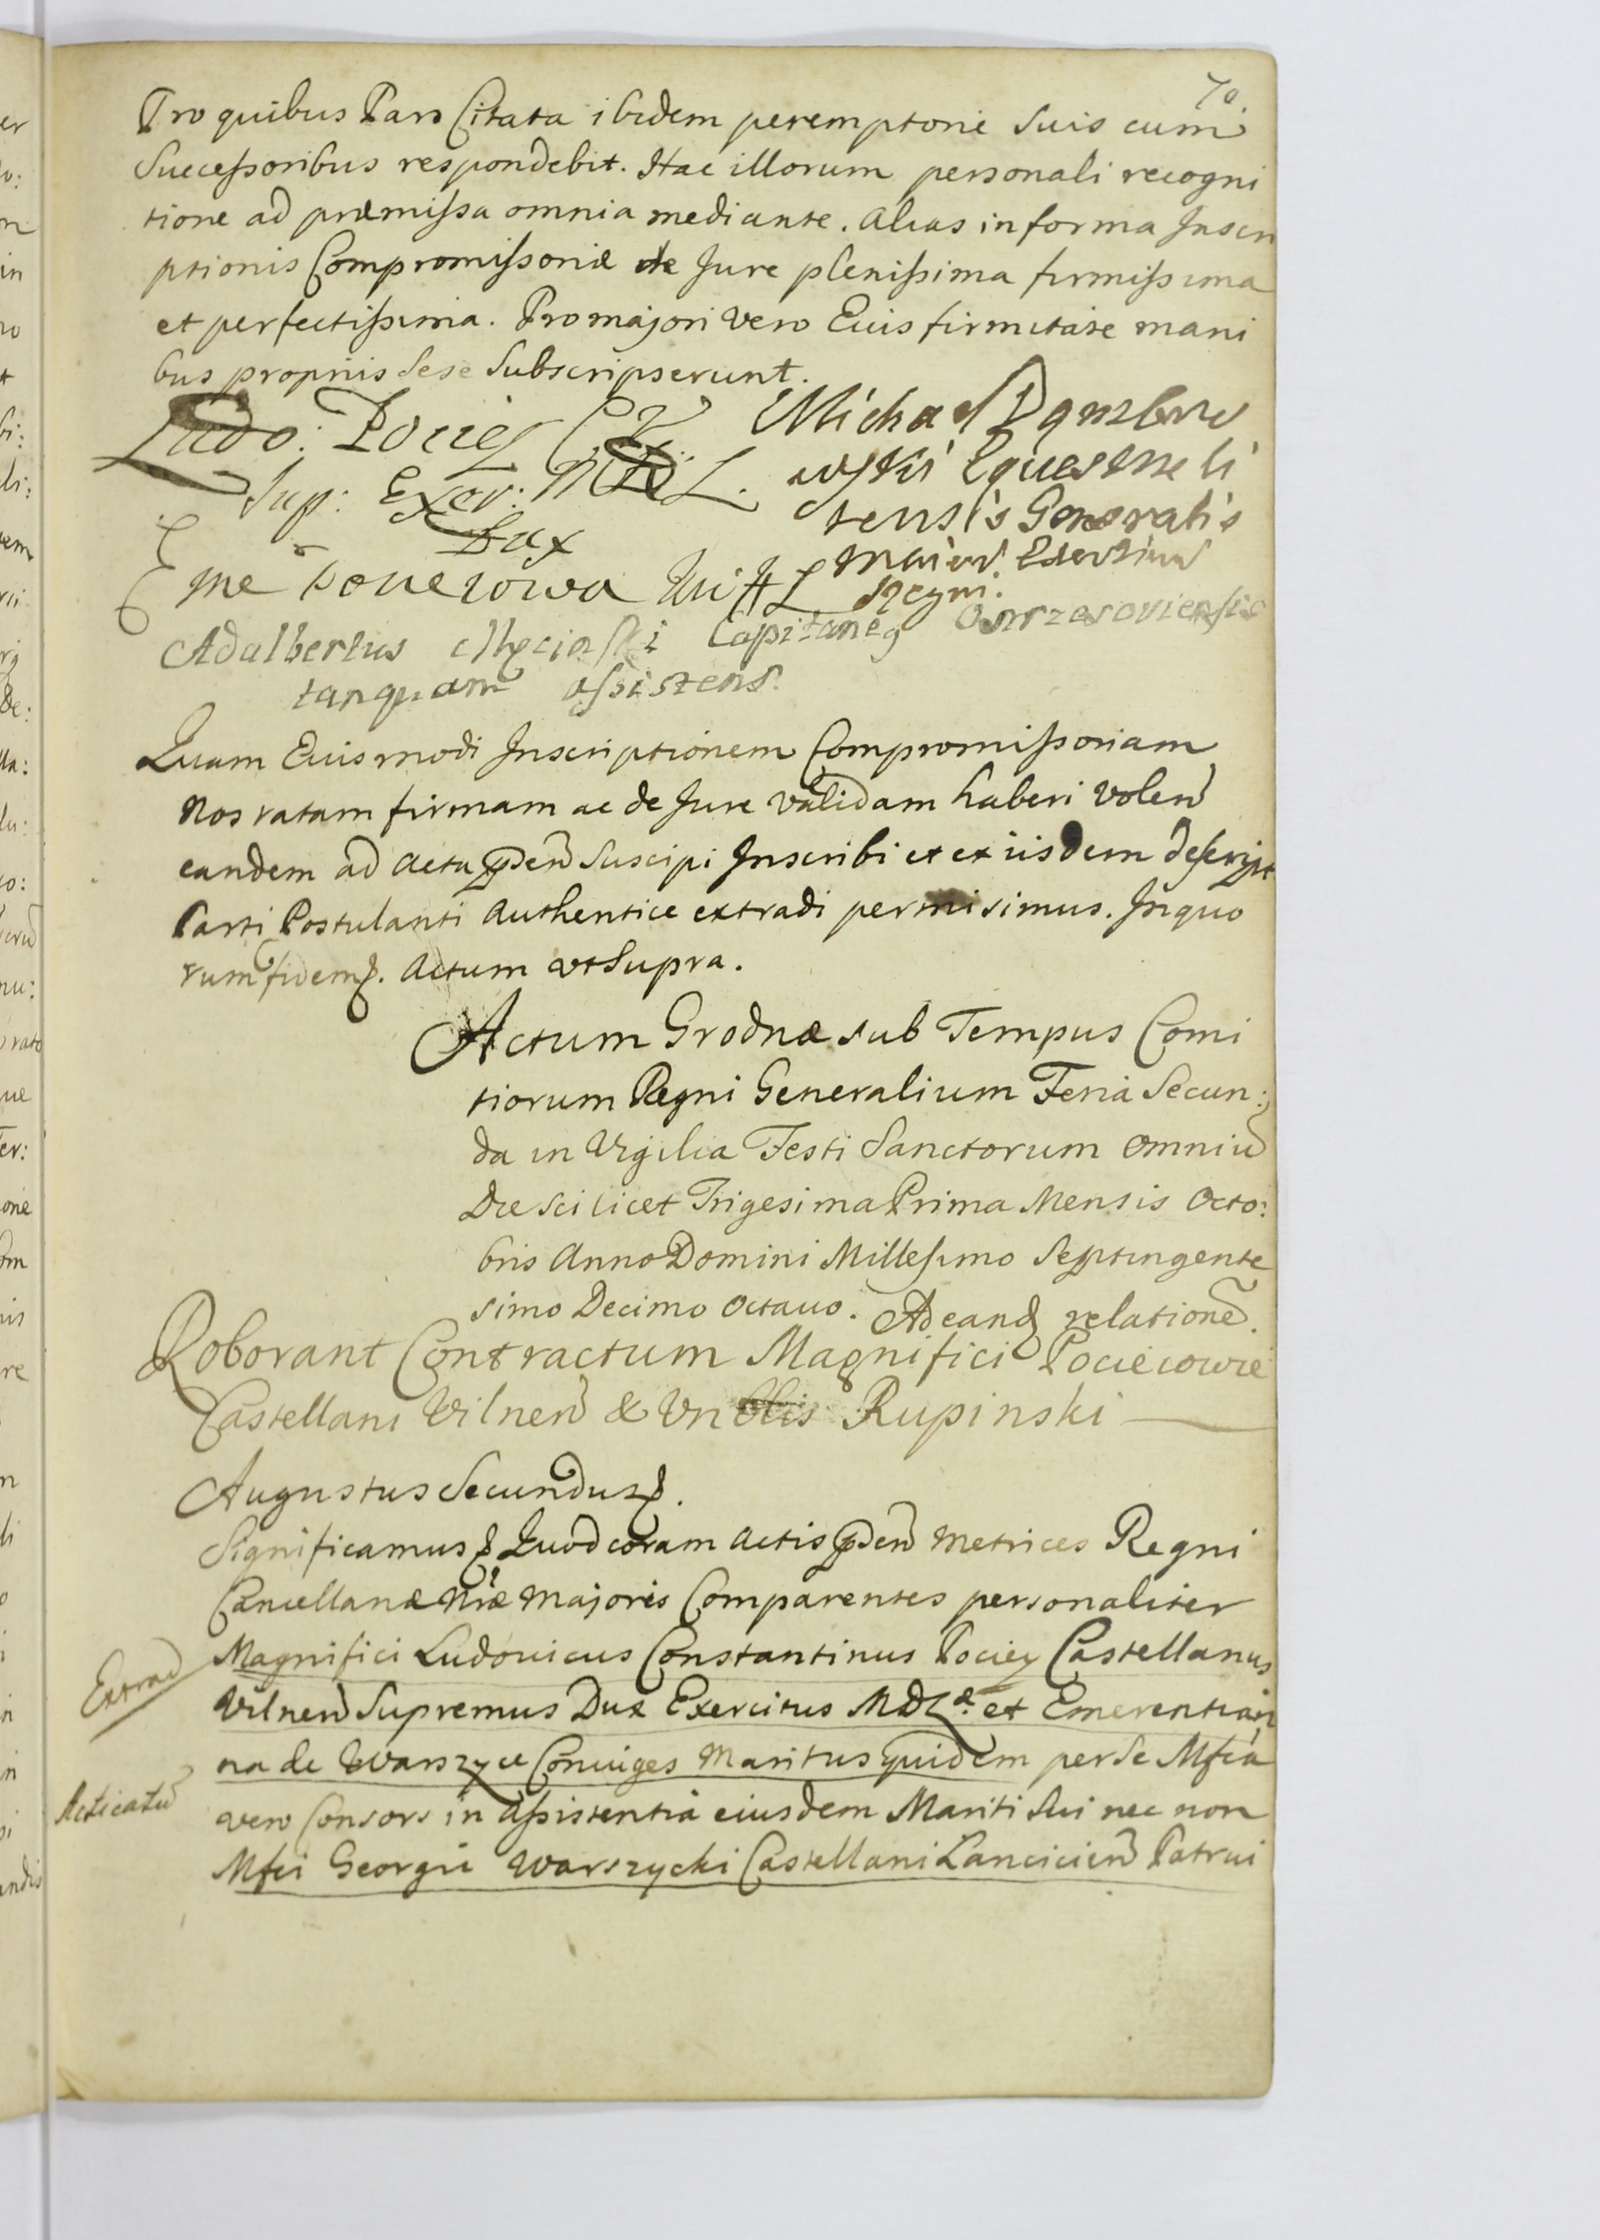 70.
Pro quibus Pars Citata ibidem peremptorie suis cum
Successoribus respondebit. Hac illorum personali recogni
tione ad præmissa omnia mediante. Alias in forma Inscri
ptionis Compromissoriæ de Jure plenissima firmissima
et perfectissima. Pro majori vero Euis firmitate mani
bus proprijs sese Subscripserunt.
Ludo: Pociey C V
Sup: Exer: M D L.
Dux
Michael Dąmbro
wskii Equestris li
tensis Generalis
Maior Exercituu
Regni.
Eme Pocieiowa HWXL
Adalbertus Męciński Capitaneꝰ Ostrzesoviensis
tanquam assistens.
Quam Euismodi Inscriptionem Compromissoriam
Nos ratam firmam ac de Jure validam haberi volen
eandem ad Acta pñtia suscipi Inscribi et ex iisdem descript
Parti Postulanti Authentice extradi permisimus. In quo
rum fidem. Actum vt Supra.
Actum Grodnæ sub Tempus Comi
tiorum Regni Generalium Feria Secun:
da in Vigilia Festi Sanctorum Omniū
Die scilicet Trigesima Prima Mensis Octo:
bris Anno Domini Millesimo Septingente
simo Decimo Octauo. Ad eand relationē.
Roborant Contractum Magnifici Pocieiowie
Castellani Vilnen & Vn Rupinski
Augustus Secundus.
Significamus Quod coram Actis pñtibus Metrices Regni
Cancellariæ Nræ Majoris Comparentes personaliter
Extrad
Magnifici Ludouicus Constantinus Pociey Castellanus
Vilnen Supremus Dux Exercitus MDL. et Emerentian
na de Warszyce Coniuges Maritus quidem per se Mfca
Acticatū
vero Consors in Assistentia eiusdem Mariti sui nec non
Mfci Georgii Warszycki Castellani Lancicien Patrui